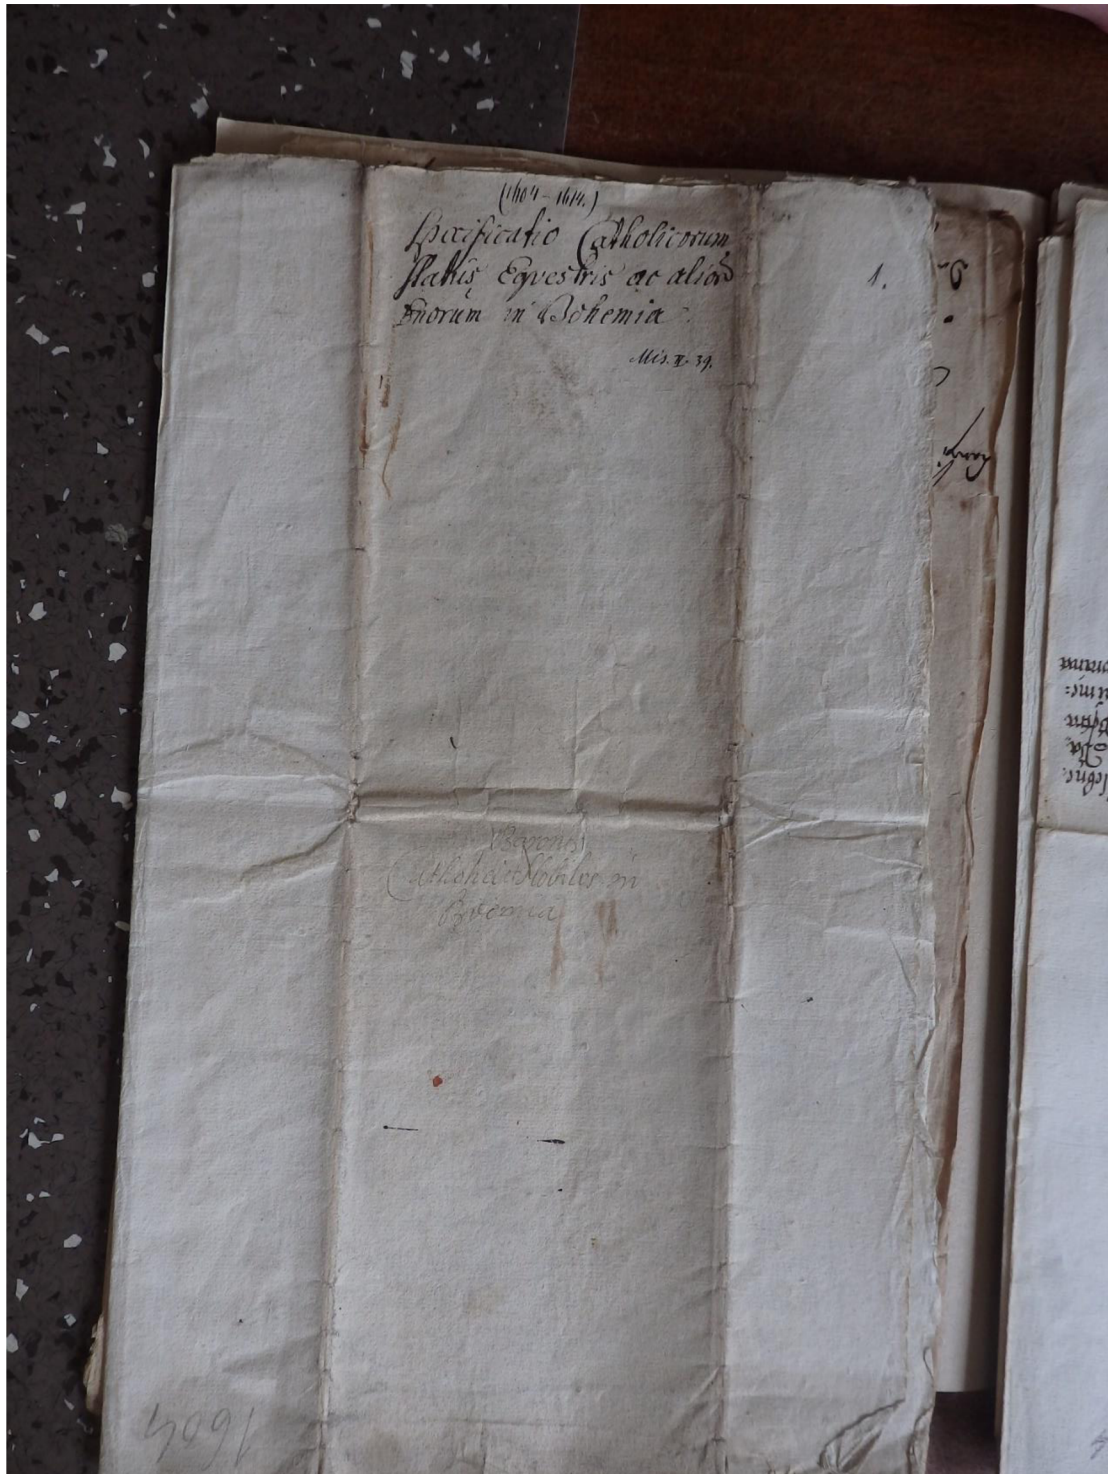 (1604 – 1614.)
Specificatio Catholicorum
Status Equestris ac alior
Dnorum in Bohemia
1.
Mis. II. 39.
Barones
Catholici et Nobiles in
Boemia
1604